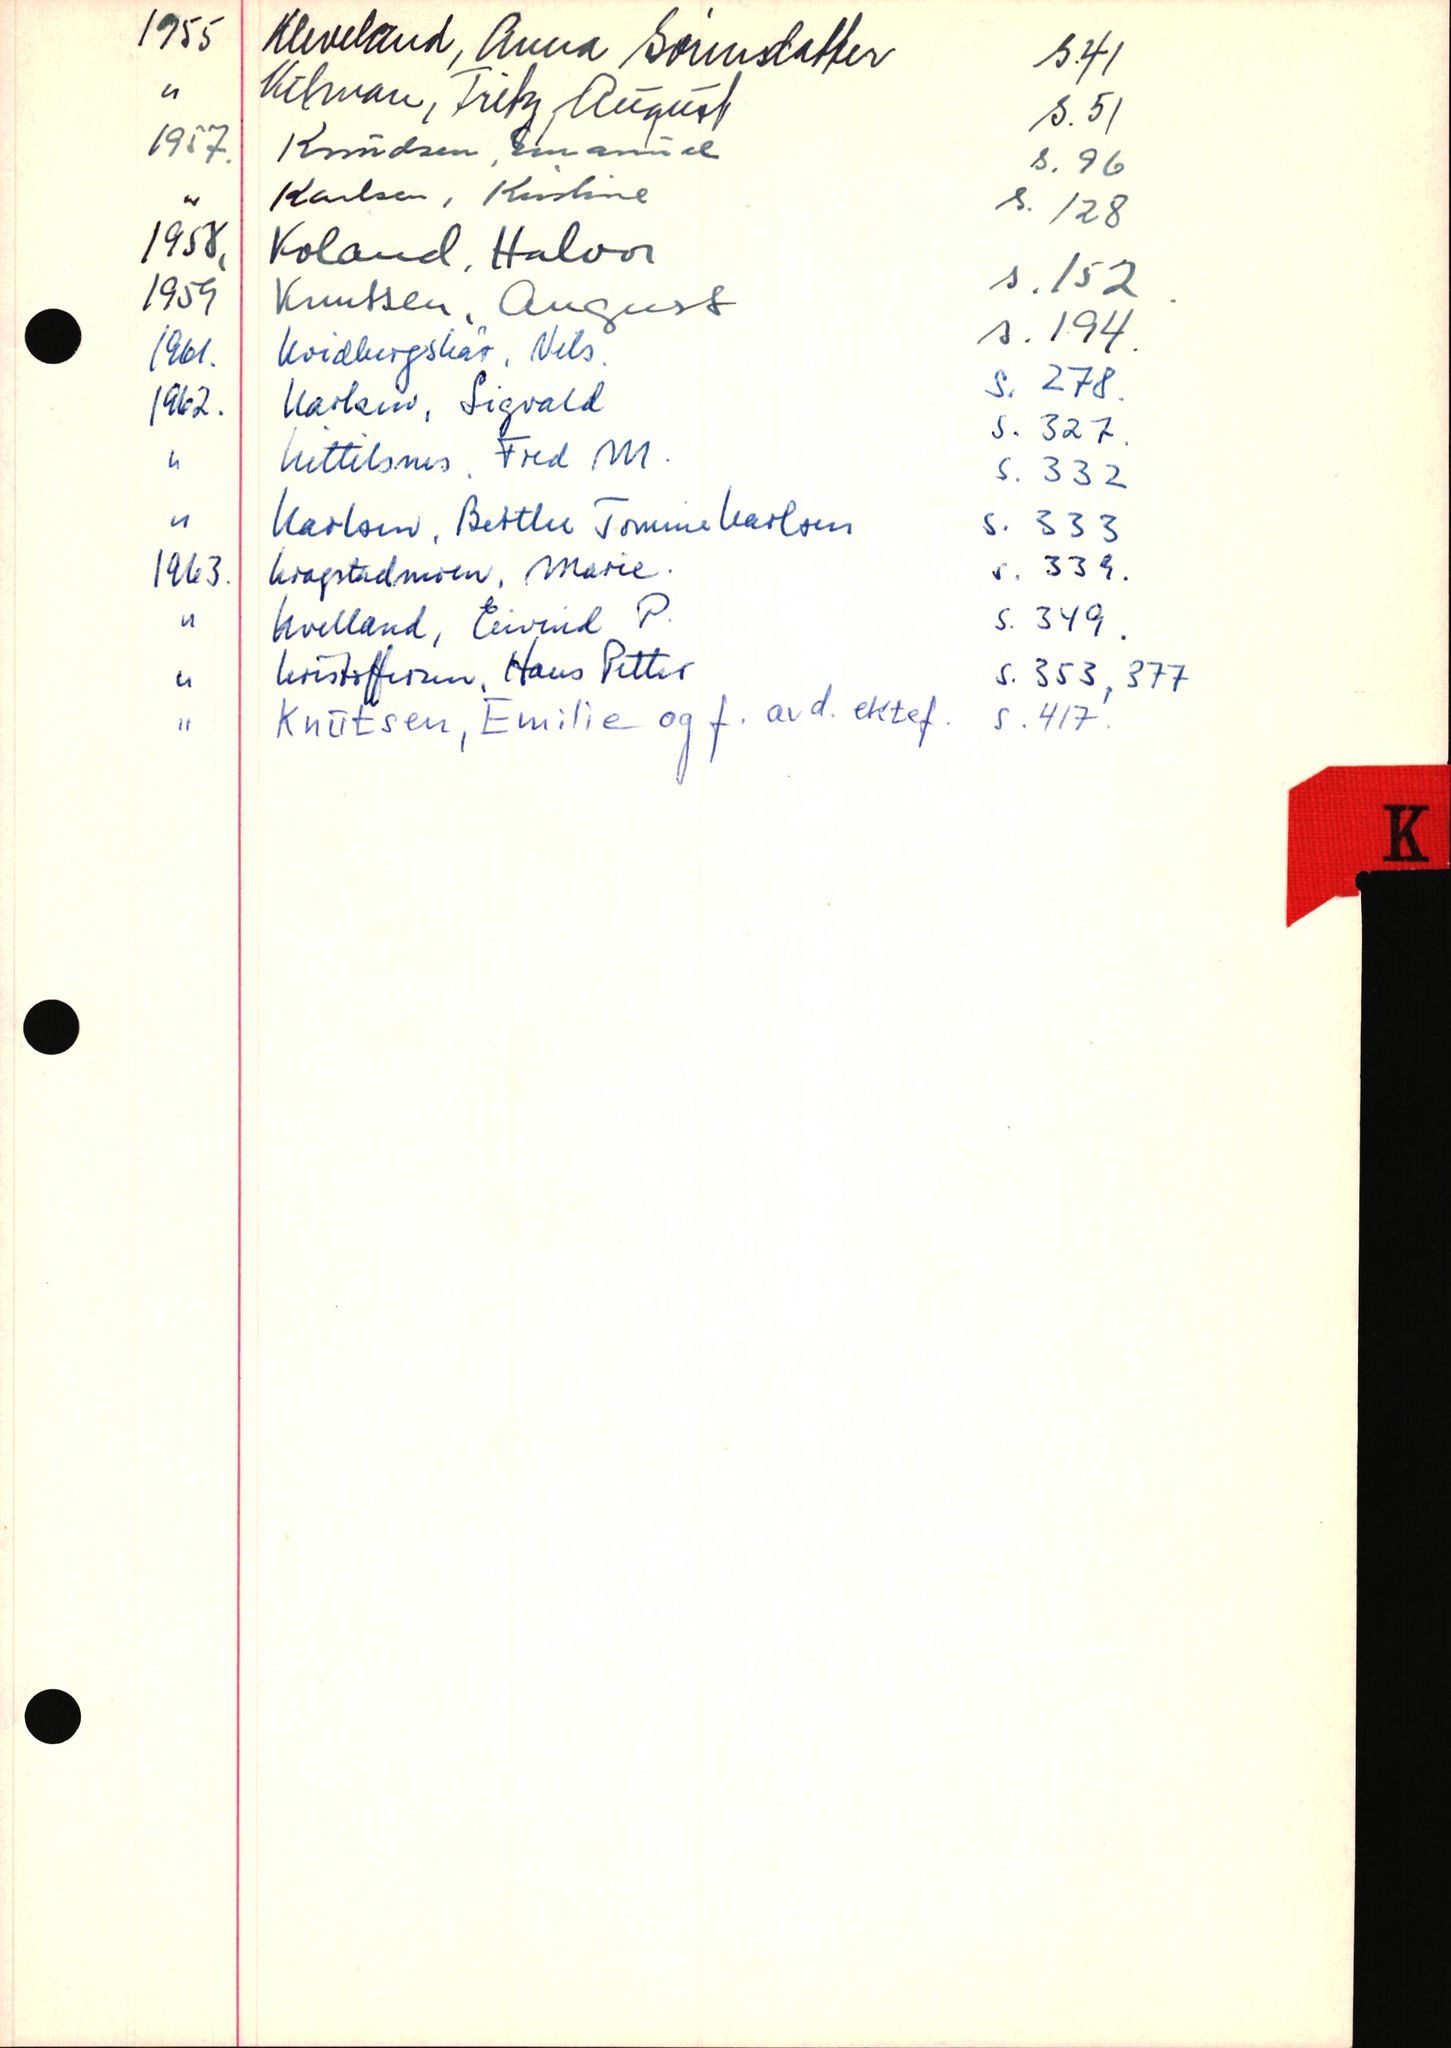 1955 Kleveland, Anna Sørinsdatter s. 41
" Kilman, Fritz August s. 51
1957. Knudsen, Emanuel s. 96
" Karlsen, Kristine s. 128
1958, Koland, Halvor s. 152
1959 Knutsen, August s. 194.
1961. Kvidbergskår, Nils. s. 278.
1962. Karlsen, Sigvald s. 327.
" Kittilsnes, Fred M. s. 332
" Karlsen, Berthe Tomine Karlsen s. 333
1963. Krogstadmoen, Marie. s. 339.
" Kvelland, Eivind P. s. 349.
" Kristoffersen, Hans Petter s. 353, 377
" Knutsen, Emilie og f. avd. ektef. s. 417.
K